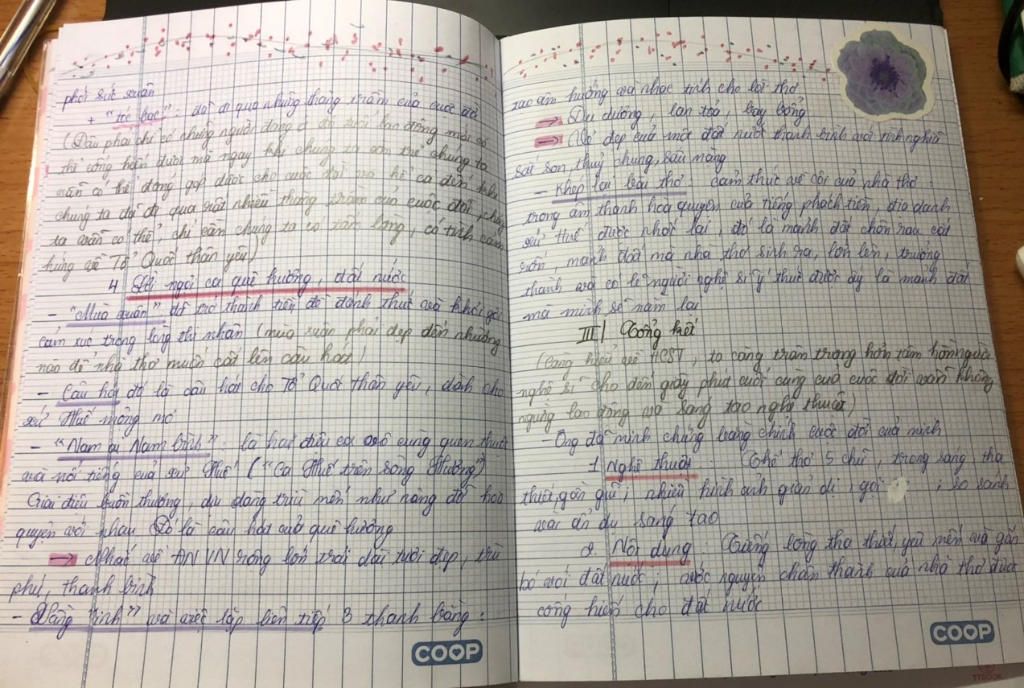 phơi sức xuân
+ "tóc bạc" : đời đi qua những thăng trầm của cuộc đời
(Đâu phải chỉ có những người đang ở độ tuổi lao động mới có
thể cống hiến được mà ngay khi chúng ta còn trẻ chúng ta
vẫn có thể đóng góp được cho cuộc đời và kể cả đến khi
chúng ta đã đi qua rất nhiều thăng trầm của cuộc đời, chúng
ta vẫn có thể, chỉ cần chúng ta có tấm lòng, có tình cảm
hứng về Tổ Quốc thân yêu)
4 Lời ngợi ca quê hương, đất nước
- "Mùa xuân" đã trở thành tiền đề đánh thức và khơi gợi
cảm xúc trong lòng thi nhân (mùa xuân phải đẹp đến nhường
nào để nhà thơ muốn cất lên câu hát)
- Câu hát đó là câu hát cho Tổ Quốc thân yêu, dành cho
xứ Huế mộng mơ
- "Nam ai Nam bình" : là hai điệu ca vô cùng quen thuộc
và nổi tiếng của xứ Huế ("Ca Huế trên sông Hương")
Giai điệu buồn thương, dịu dàng trìu mến như nang đã hoà
quyện với nhau Đó là câu hát của quê hương
→ Nhắc về ANVN rộng lớn trải dài tươi đẹp, trù
phú, thanh bình
- Vần "inh" và việc lặp liên tiếp 3 thanh bằng :
COOP
tạo âm hưởng và nhạc tính cho lời thơ
→ Du dương, lan toả, bay bổng
→ Vẻ đẹp của một đất nước thanh bình với tình nghĩa
sắt son, thuỷ chung, sâu nặng
- Khép lại bài thơ : cảm thức về cội của nhà thơ
trong âm thanh hoà quyện của tiếng phách tiền, địa danh
xứ Huế được nhắc lại, đó là mảnh đất chôn rau cắt
rốn, mảnh đất mà nhà thơ sinh ra, lớn lên, trưởng
thành và có lẽ người nghệ sĩ ý thức được ấy là mảnh đất
mà mình sẽ nằm lại
III/ Tổng kết
(Càng hiểu về HCST, ta càng trân trọng hơn tâm hồn người
nghệ sĩ cho đến giây phút cuối cùng của cuộc đời vẫn không
ngừng lao động và sáng tạo nghệ thuật)
- Ông đã minh chứng bằng chính cuộc đời của mình
1 Nghệ thuật : Thể thơ 5 chữ, trong sáng, tha
thiết, gần gũi ; nhiều hình ảnh giản dị, gợi ; so sánh
và ẩn dụ sáng tạo
2. Nội dung : Tiếng lòng tha thiết, yêu mến và gắn
bó với đất nước ; ước nguyện chân thành của nhà thơ được
cống hiến cho đất nước
COOP